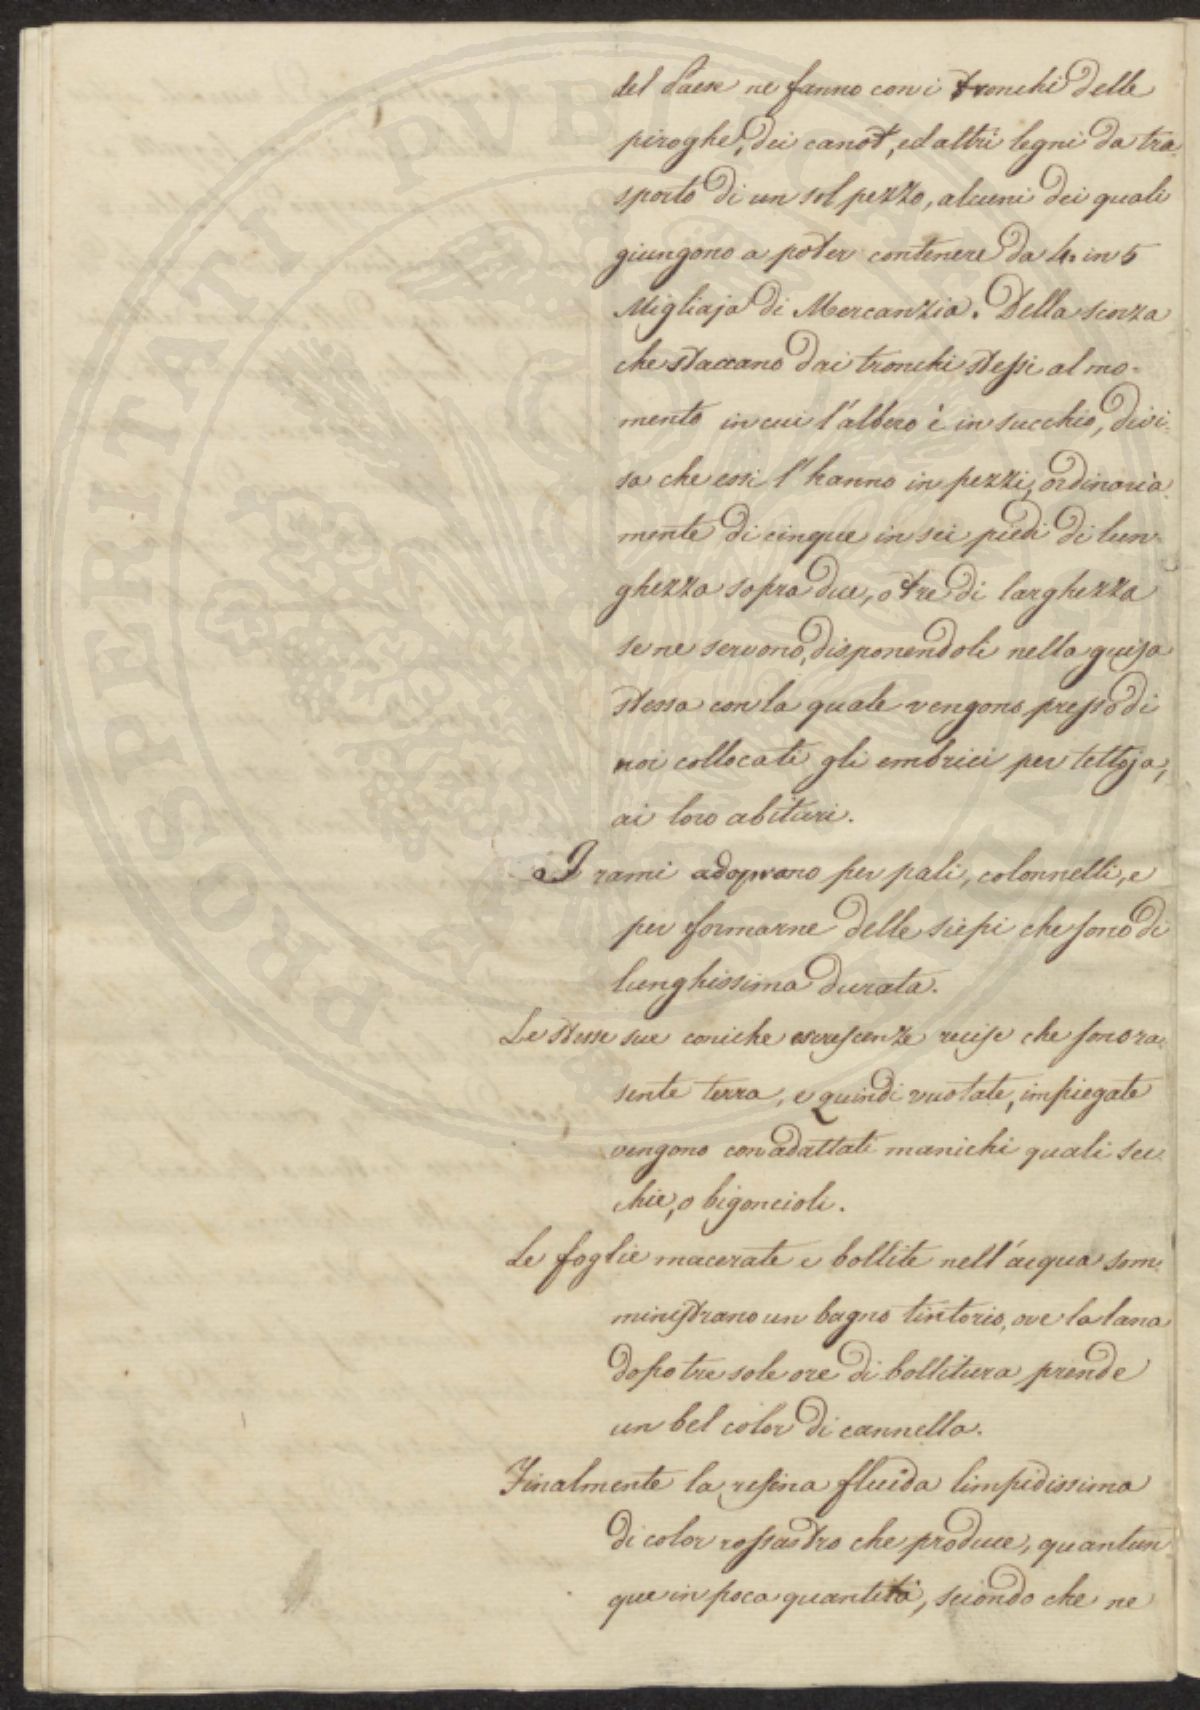 del Paese ne fanno con i tronchi delle
piroghe, dei canot, ed altri legni da tra
sporto di un sol pezzo, alcuni dei quali
giungono a poter contenere da 4. in 5
Migliaja di Mercanzia. Della scorza
che staccano dai tronchi stessi al mo-
mento in cui l'albero è in succhio, divi-
sa che essi l'hanno in pezzi, ordinaria
mente di cinque in sei piedi di lun-
ghezza sopra due, o tre di larghezza
se ne servono, disponendoli nella guisa
stessa con la quale vengono presso di
noi collocati gli embrici per tettoja,
ai loro abituri.
I rami adoprano per pali, colonnelli, e
per formarne delle siepi che sono di
lunghissima durata.
Le stesse sue coniche escrescenze recise che sono ra-
sente terra, e quindi vuotate, impiegate
vengono con adattati manichi quali sec-
chie, o bigoncioli.
Le foglie macerate e bollite nell'acqua som-
ministrano un bagno tintorio, ove la lana
dopo tre sole ore di bollitura prende
un bel color di cannella.
Finalmente la resina fluida limpidissima
di color rossastro che produce, quantun
que in poca quantità, secondo che ne
PROSPERITATI PVBLICAE